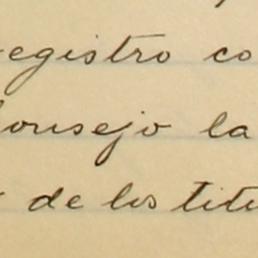 registro co
Consejo la
de los titu